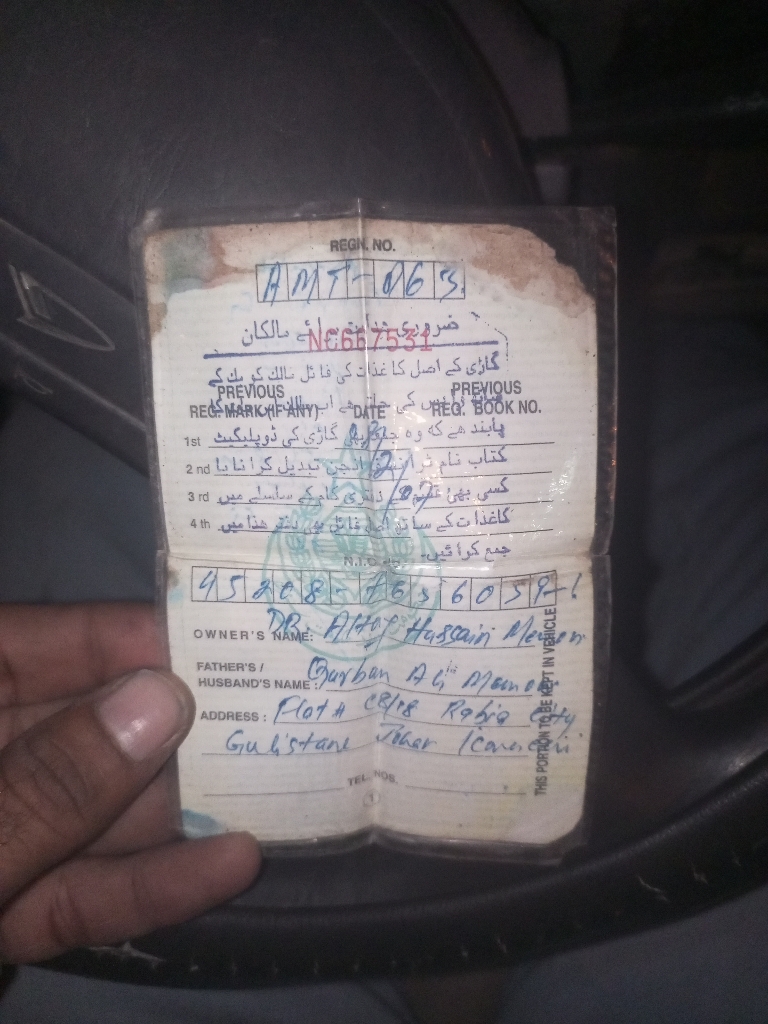 REGN. NO.
AMT-063
ضروری ہدایت برائے مالکان
NC667531
گاڑی کے اصل کاغذات کی فائل مالک کو یک کے
PREVIOUS PREVIOUS
REG. MARK (IF ANY) DATE REG. BOOK NO.
1st پابند ھے کہ وہ گاڑی کی ڈوپلیکیٹ
2 nd کتاب نام ٹرانسفر انجن تبدیل کرانا یا
3 rd کسی بھی دفتری کام کے سلسلے میں
4 th کاغذات کے ساتھ اصل فائل بھی دفتر ھذا میں
جمع کرائیں۔
N.I.C
OWNER'S NAME: DR. Hussain Memon
FATHER'S /
HUSBAND'S NAME: Burban Ali Memon
ADDRESS: Plot # C8/18 Rabia City
Gulistane Johar Karachi
TEL. NOS.
1
THIS PORTION TO BE KEPT IN VEHICLE